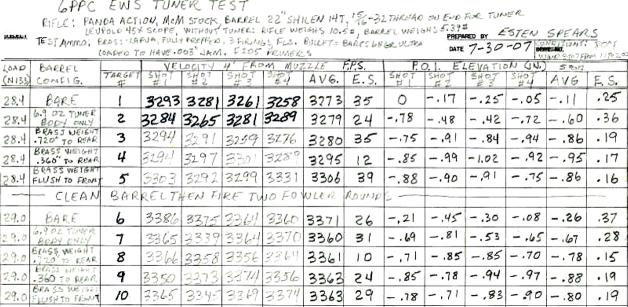 6PPC EWS TUNER TEST
RIFLE: PANDA ACTION, McM STOCK, BARREL 22" SHILEN 14T, 15/16-32 THREAD ON END FOR TUNER
LEUPOLD 45X SCOPE, WITHOUT TUNER: RIFLE WEIGHS 10.5#, BARREL WEIGHS 5.39#
TEST AMMO, BRASS: LAPUA, FULLY PREPPED, 3 FIRINGS, BULLET: BARTS ULTRA
LOADED TO HAVE .003" JAM. F205 PRIMERS
PREPARED BY ESTEN SPEARS
DATE 7-30-07
LOAD (N133) BARREL CONFIG. TARGET # VELOCITY 4' FROM MUZZLE F.P.S. P.O.I. ELEVATION (IN.)
SHOT #1 SHOT #2 SHOT #3 SHOT #4 AVG. E.S. SHOT #1 SHOT #2 SHOT #3 SHOT #4 AVG. E.S.
28.4 BARE 1 3293 3281 3261 3258 3273 35 0 -.17 -.25 -.05 -.11 .25
28.4 6.9 OZ TUNER BODY ONLY 2 3284 3265 3281 3289 3279 24 -.78 -.48 -.42 -.72 -.60 .36
28.4 BRASS WEIGHT .720" TO REAR 3 3294 3291 3259 3276 3280 35 -.75 -.91 -.84 -.94 -.86 .19
28.4 BRASS WEIGHT .360" TO REAR 4 3297 3295 12 -.85 -.99 -1.02 -.92 -.95 .17
28.4 BRASS WEIGHT FLUSH TO FRONT 5 3303 3292 3299 3331 3306 39 -.88 -.90 -.91 -.75 -.86 .16
CLEAN BARREL THEN FIRE TWO FOWLER ROUNDS
29.0 BARE 6 3386 3375 3364 3360 3371 26 -.21 -.45 -.30 -.08 -.26 .37
29.0 6.9 OZ TUNER BODY ONLY 7 3365 3339 3364 3370 3360 31 -.69 -.81 -.53 -.65 -.67 .28
29.0 BRASS WEIGHT .720 TO REAR 8 3366 3358 3356 3364 3361 10 -.71 -.85 -.85 -.70 -.78 .15
29.0 BRASS WEIGHT .360 TO REAR 9 3350 3373 3374 3356 3363 24 -.85 -.78 -.94 -.97 -.88 .19
29.0 BRASS WEIGHT FLUSH TO FRONT 10 3365 3345 3369 3374 3363 29 -.78 -.71 -.83 -.90 -.80 .19